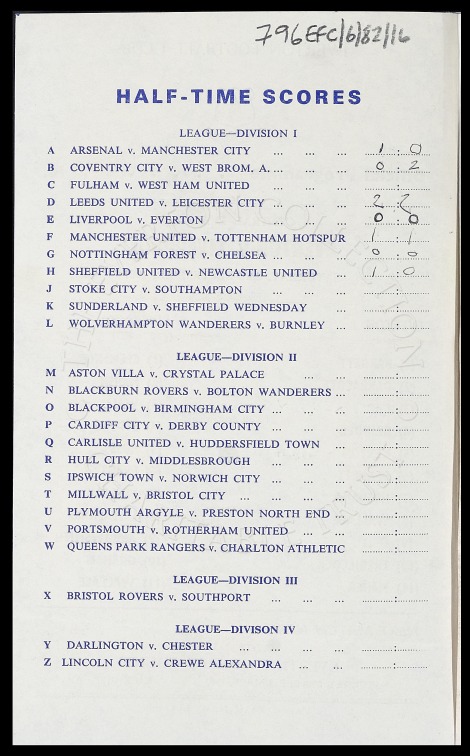 796EFC/6/82/16
HALF-TIME SCORES
LEAGUE—DIVISION I
A ARSENAL v. MANCHESTER CITY ... ... ... 1 : 0
B COVENTRY CITY v. WEST BROM. A. ... ... ... 0 : 2
C FULHAM v. WEST HAM UNITED ... ... ... :
D LEEDS UNITED v. LEICESTER CITY ... ... ... 2 : 2
E LIVERPOOL v. EVERTON ... ... ... 0 : 0
F MANCHESTER UNITED v. TOTTENHAM HOTSPUR 1 : 1
G NOTTINGHAM FOREST v. CHELSEA ... ... ... 0 : 0
H SHEFFIELD UNITED v. NEWCASTLE UNITED ... 1 : 0
J STOKE CITY v. SOUTHAMPTON ... ... ... :
K SUNDERLAND v. SHEFFIELD WEDNESDAY ... :
L WOLVERHAMPTON WANDERERS v. BURNLEY ... :
LEAGUE—DIVISION II
M ASTON VILLA v. CRYSTAL PALACE ... ... :
N BLACKBURN ROVERS v. BOLTON WANDERERS ... :
O BLACKPOOL v. BIRMINGHAM CITY ... ... ... :
P CARDIFF CITY v. DERBY COUNTY ... ... ... :
Q CARLISLE UNITED v. HUDDERSFIELD TOWN ... :
R HULL CITY v. MIDDLESBROUGH ... ... ... :
S IPSWICH TOWN v. NORWICH CITY ... ... ... :
T MILLWALL v. BRISTOL CITY ... ... ... ... :
U PLYMOUTH ARGYLE v. PRESTON NORTH END ... :
V PORTSMOUTH v. ROTHERHAM UNITED ... ... :
W QUEENS PARK RANGERS v. CHARLTON ATHLETIC :
LEAGUE—DIVISION III
X BRISTOL ROVERS v. SOUTHPORT ... ... ... :
LEAGUE—DIVISON IV
Y DARLINGTON v. CHESTER ... ... ... ... :
Z LINCOLN CITY v. CREWE ALEXANDRA ... ... :